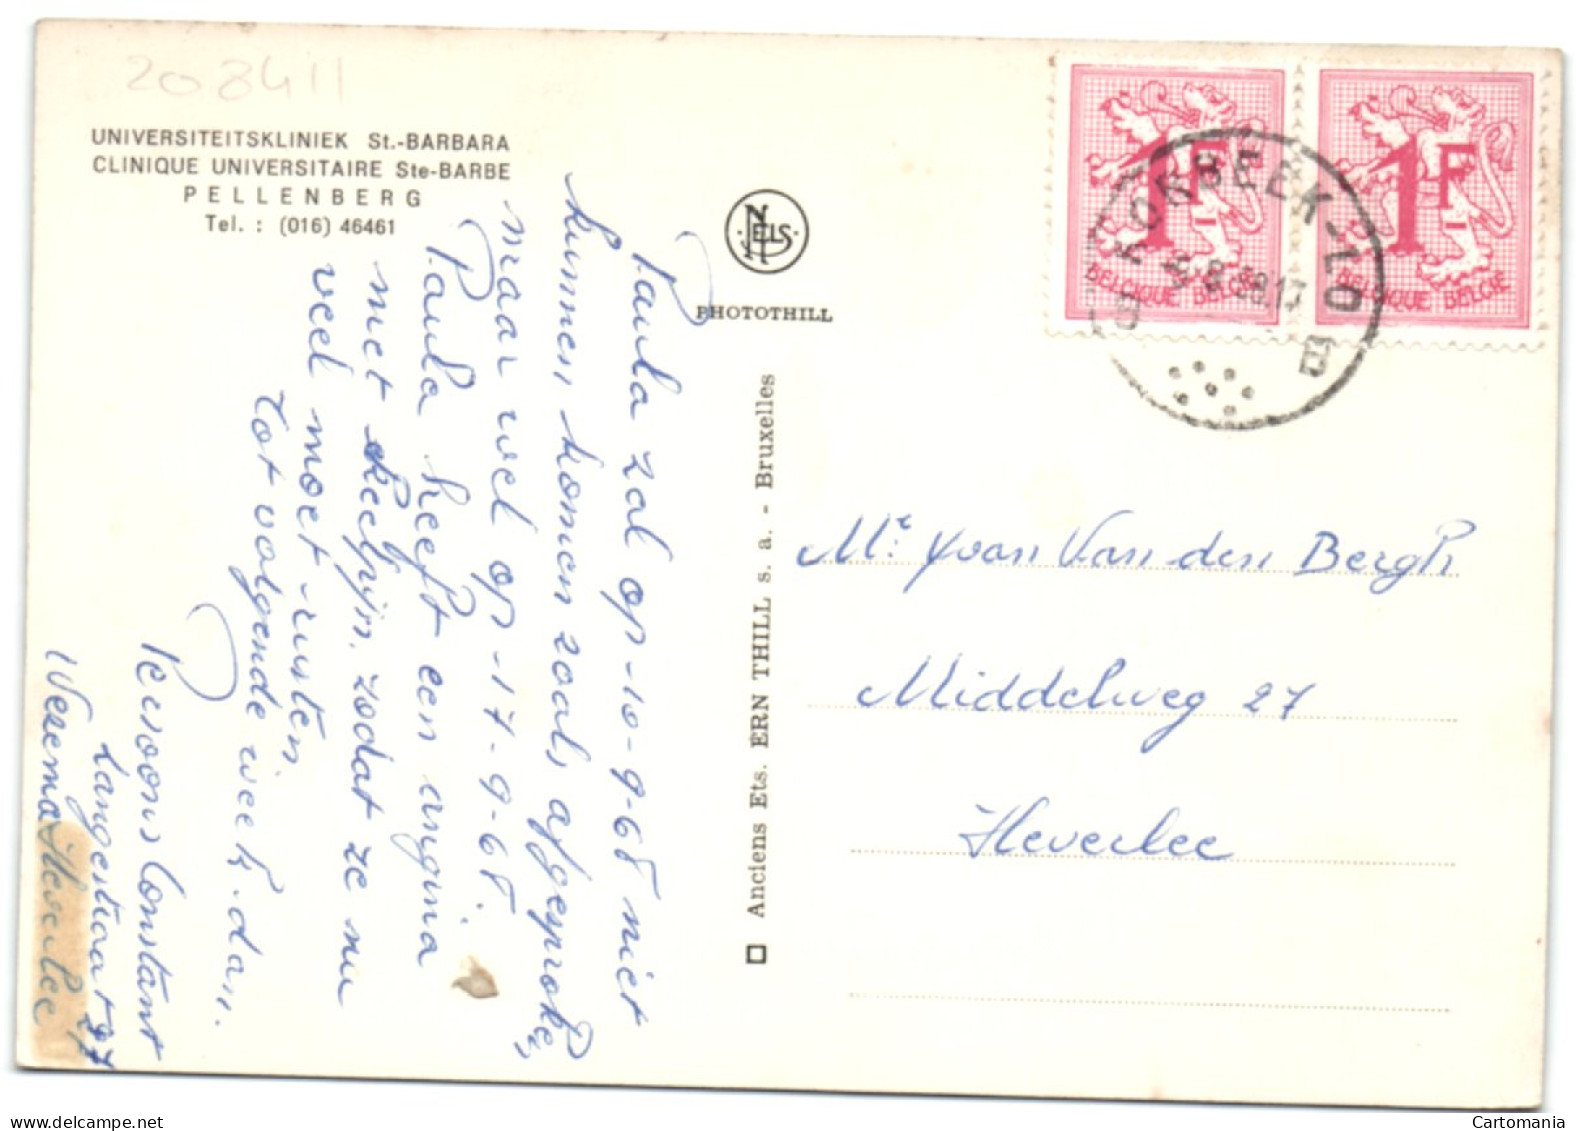 208411
UNIVERSITEITSKLINIEK St.-BARBARA
CLINIQUE UNIVERSITAIRE Ste-BARBE
PELLENBERG
Tel. : (016) 46461
Paula zal op -10-9-68 niet
kunnen komen zoals afgesproken,
maar wel op -17-9-68.
Paula heeft een angina
met keelpijn, zodat ze nu
veel moet rusten.
Tot volgende week dan.
Persoons Constant
Langestraat 27
Weerema Heverlee
NELS
PHOTOTHILL
Anciens Ets. ERN THILL s. a. - Bruxelles
1F
BELGIQUE BELGIË
1F
BELGIQUE BELGIË
KORBEEK-LO
Mr. Yvan Van den Bergh
Middelweg 27
Heverlee
Cartomania